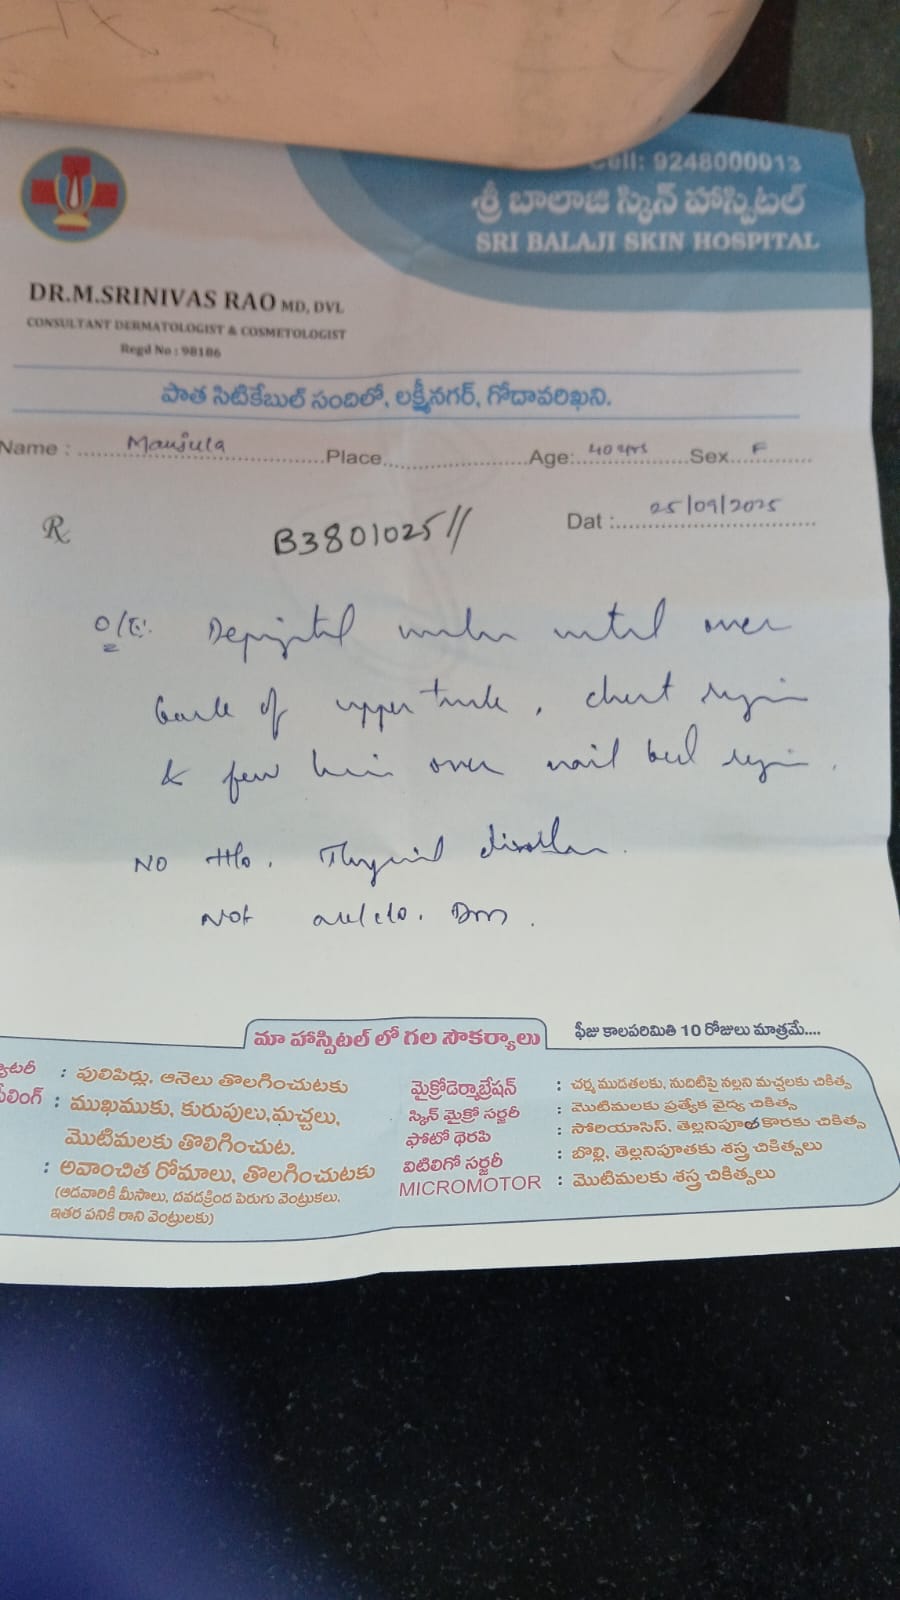 Cell: 9248000013
శ్రీ బాలాజి స్కిన్ హాస్పిటల్
SRI BALAJI SKIN HOSPITAL
DR.M.SRINIVAS RAO MD, DVL
CONSULTANT DERMATOLOGIST & COSMETOLOGIST
Regd No : 98186
పాత సిటికేబుల్ సందిలో, లక్ష్మీనగర్, గోదావరిఖని.
Name : Manjula Place Age: 40 yrs Sex F
Rx B3801025// Dat : 25/09/2025
O/E. over
of upper trunk, chest region
& few over nail bed region.
NO H/o. Thyroid disorder.
Not DM.
మా హాస్పిటల్ లో గల సౌకర్యాలు
ఫీజు కాలపరిమితి 10 రోజులు మాత్రమే....
: పులిపిర్లు, ఆనెలు తొలగించుటకు
: ముఖముకు, కురుపులు,మచ్చలు,
మొటిమలకు తొలిగించుట.
: అవాంచిత రోమాలు, తొలగించుటకు
(ఆడవారికి మీసాలు, దవడక్రింద పెరుగు వెంట్రుకలు.
ఇతర పనికి రాని వెంట్రులకు)
మైక్రోడెర్మాబ్రేషన్ : చర్మ ముడతలకు, నుదిటిపై నల్లని మచ్చలకు చికిత్స
స్కిన్ మైక్రో సర్జరీ : మొటిమలకు ప్రత్యేక వైద్య చికిత్స
ఫోటో థెరపి : సోరియాసిస్, తెల్లనిపూత కొరకు చికిత్స
విటిలిగో సర్జరీ : బొల్లి, తెల్లనిపూతకు శస్త్ర చికిత్సలు
MICROMOTOR : మొటిమలకు శస్త్ర చికిత్సలు